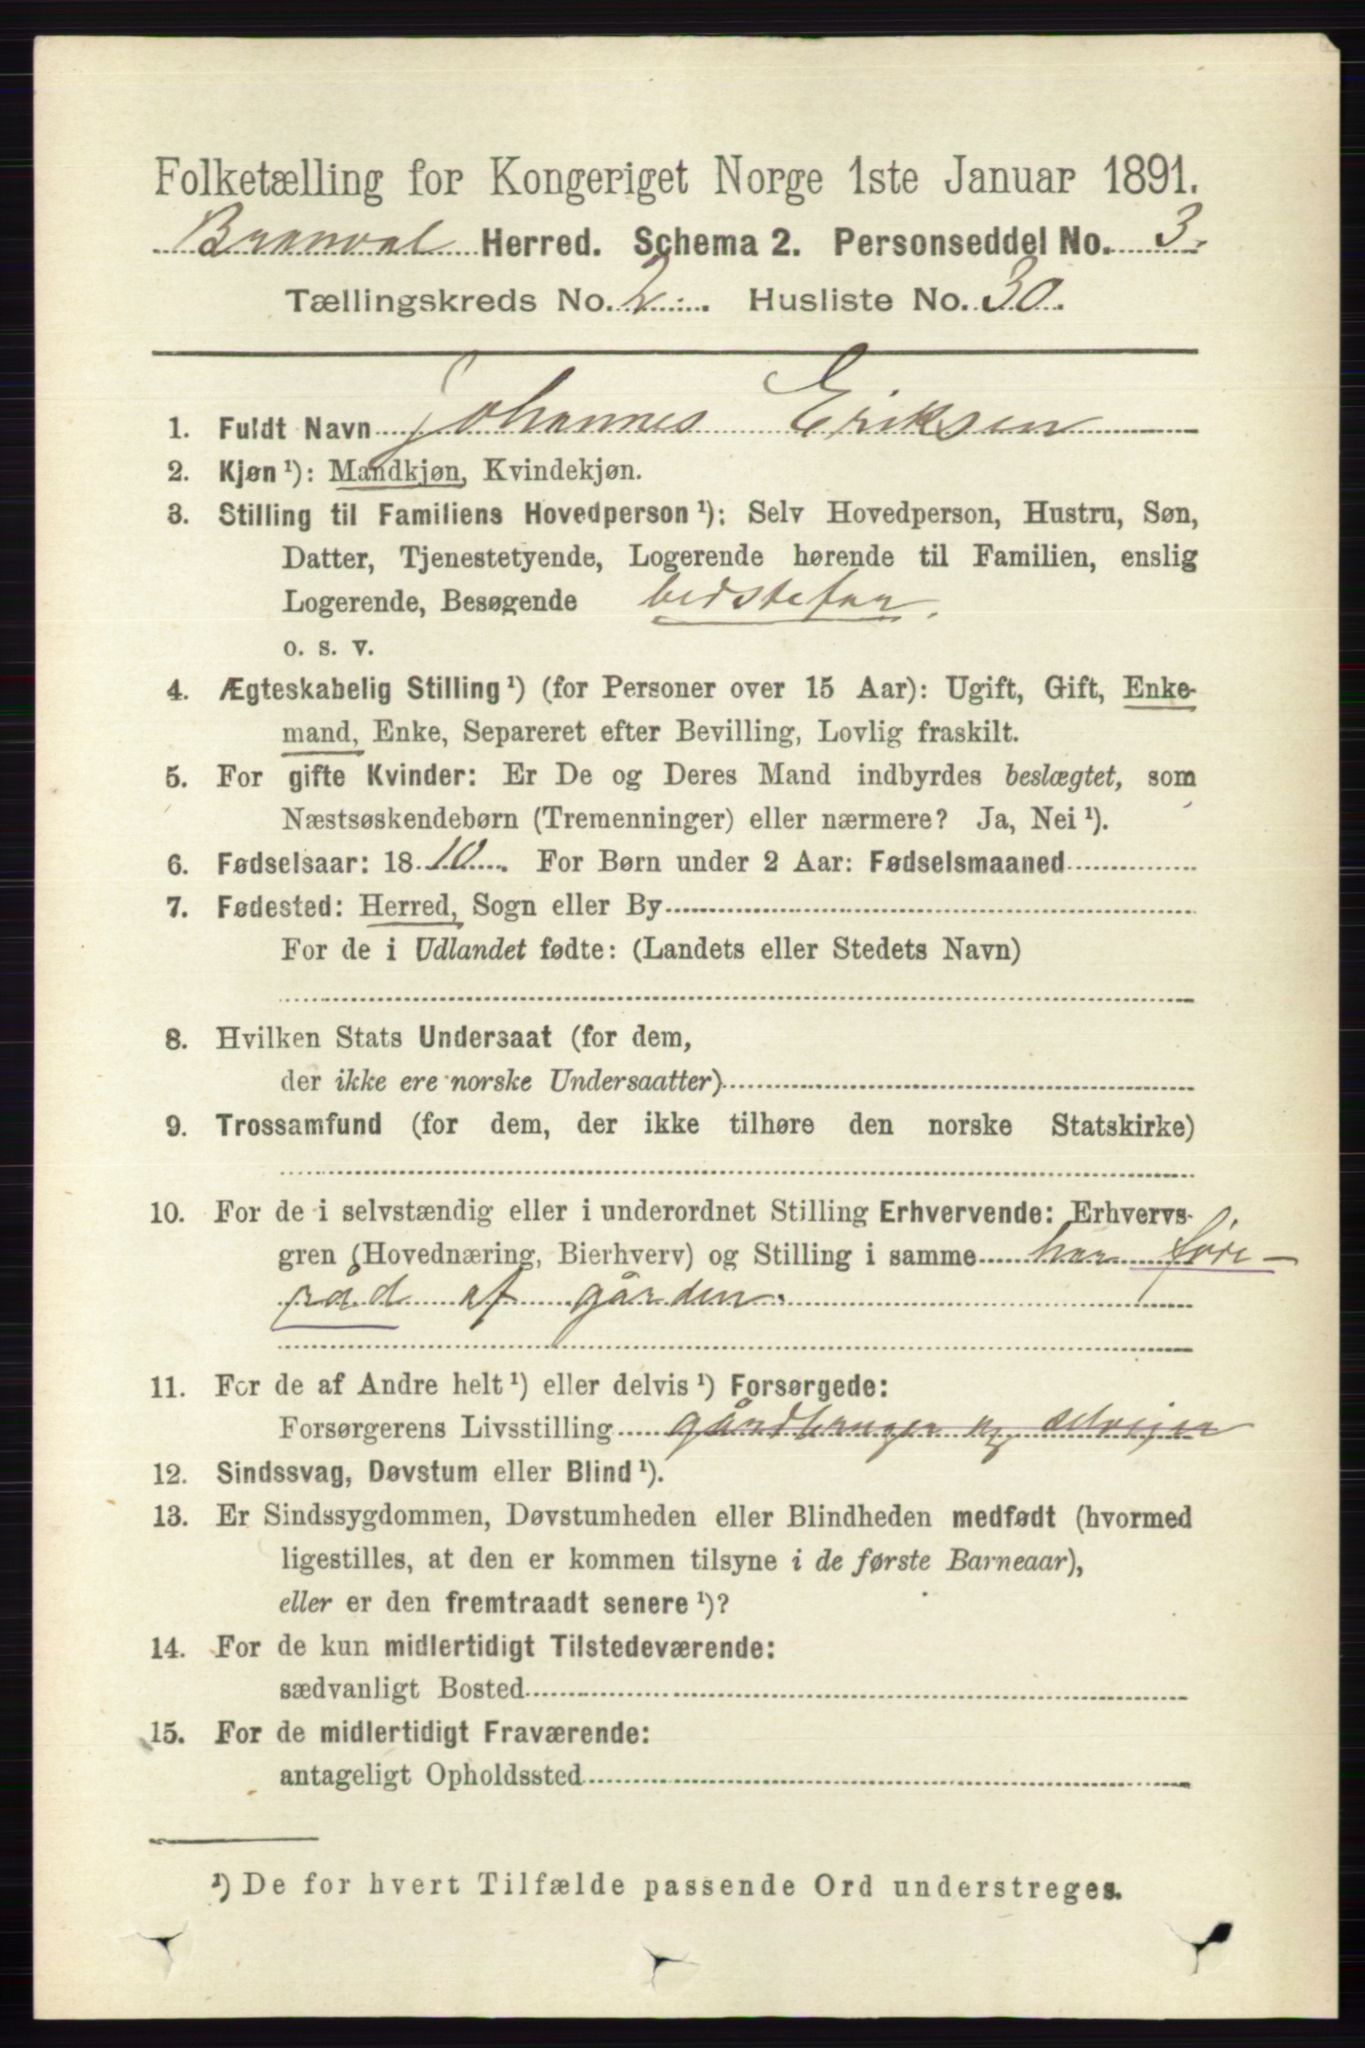 Folketælling for Kongeriget Norge 1ste Januar 1891.
Branval Herred. Schema 2. Personseddel No. 3.
Tællingskreds No. 2. Husliste No. 30.
1. Fuldt Navn Johannes Eriksen
2. Kjøn ¹): Mandkjøn, Kvindekjøn.
3. Stilling til Familiens Hovedperson ¹): Selv Hovedperson, Hustru, Søn,
Datter, Tjenestetyende, Logerende hørende til Familien, enslig
Logerende, Besøgende bedstefar.
o. s. v.
4. Ægteskabelig Stilling ¹) (for Personer over 15 Aar): Ugift, Gift, Enke-
mand, Enke, Separeret efter Bevilling, Lovlig fraskilt.
5. For gifte Kvinder: Er De og Deres Mand indbyrdes beslægtet, som
Næstsøskendebørn (Tremenninger) eller nærmere? Ja, Nei ¹).
6. Fødselsaar: 1810. For Børn under 2 Aar: Fødselsmaaned
7. Fødested: Herred, Sogn eller By
For de i Udlandet fødte: (Landets eller Stedets Navn)
8. Hvilken Stats Undersaat (for dem,
der ikke ere norske Undersaatter)
9. Trossamfund (for dem, der ikke tilhøre den norske Statskirke)
10. For de i selvstændig eller i underordnet Stilling Erhvervende: Erhvervs-
gren (Hovednæring, Bierhverv) og Stilling i samme har føde-
råd af gården.
11. For de af Andre helt ¹) eller delvis ¹) Forsørgede:
Forsørgerens Livsstilling gårdbruger og selveier
12. Sindssvag, Døvstum eller Blind ¹).
13. Er Sindssygdommen, Døvstumheden eller Blindheden medfødt (hvormed
ligestilles, at den er kommen tilsyne i de første Barneaar),
eller er den fremtraadt senere ¹)?
14. For de kun midlertidigt Tilstedeværende:
sædvanligt Bosted
15. For de midlertidigt Fraværende:
antageligt Opholdssted
¹) De for hvert Tilfælde passende Ord understreges.